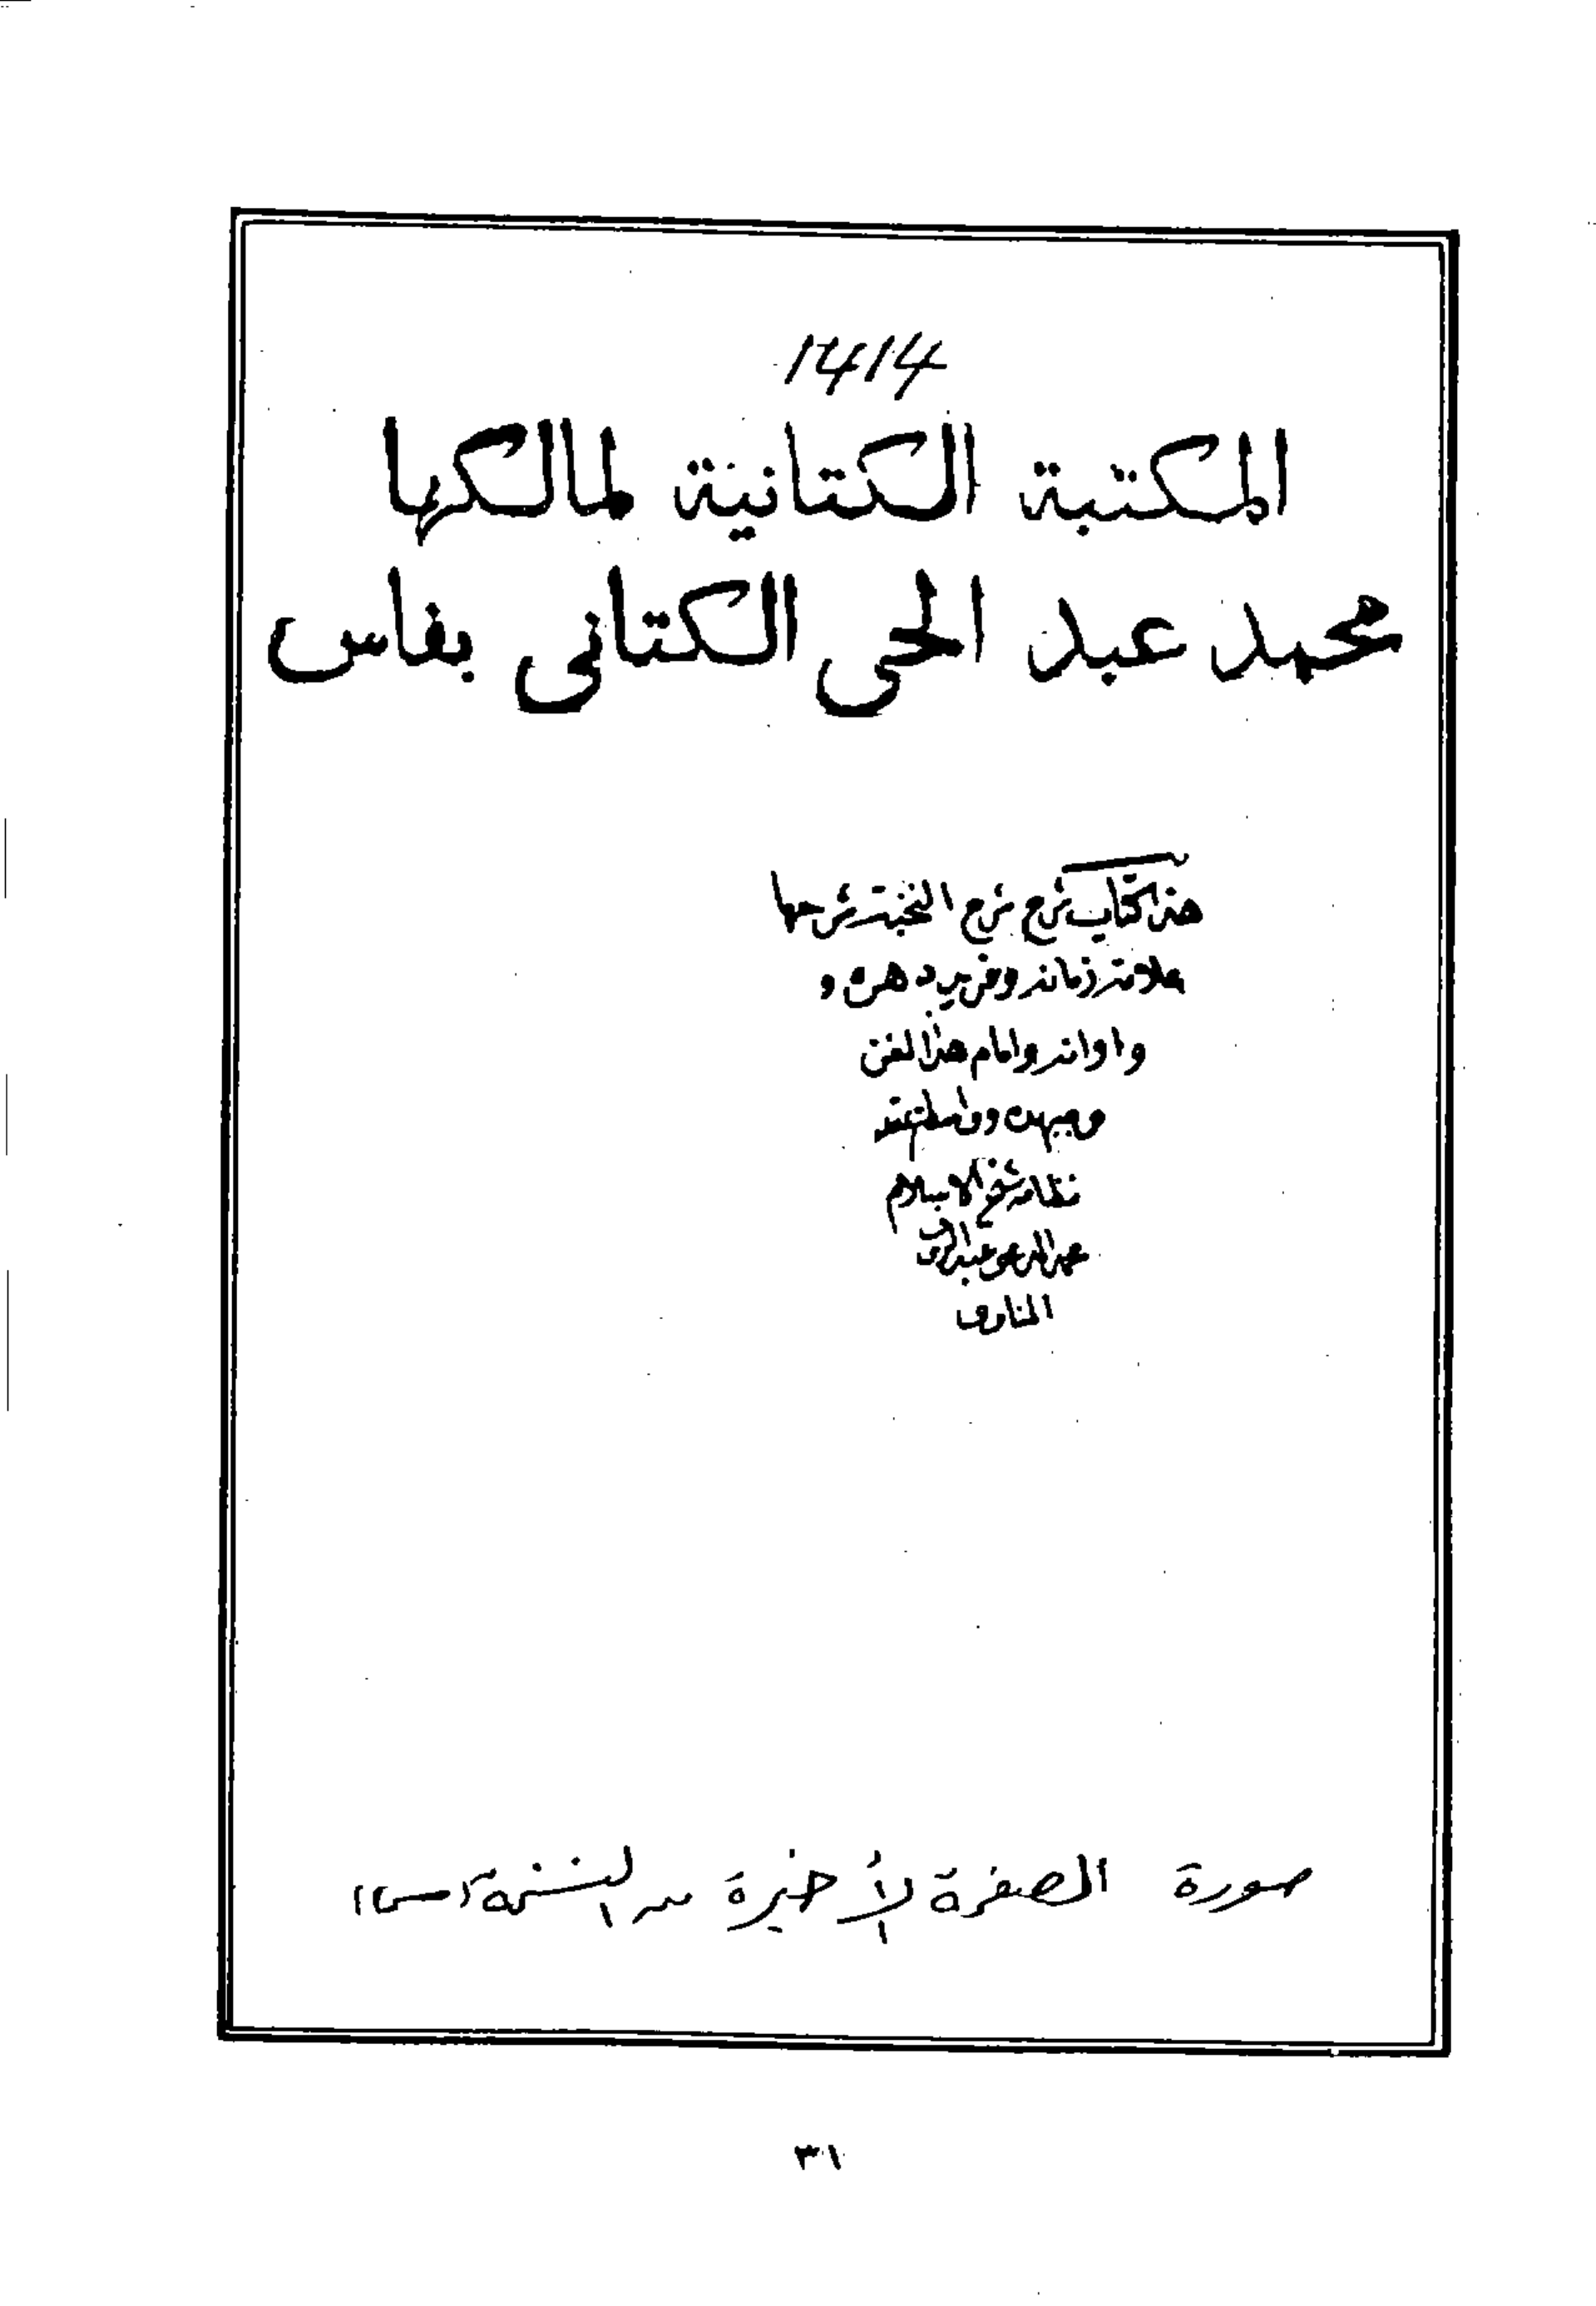 1414
المكتبة الكتانية لمالكها
محمد عبد الحى الكتانى بفاس
هذا كتاب شرح شرح النخبة شرحها
علامة زمانه وفريد دهره و
واوانه وامام هذا الفن
شيخ الاسلام
عبد الروف
المناوى
صورة الصفحة الأخيرة من النسخة (س)
٣١